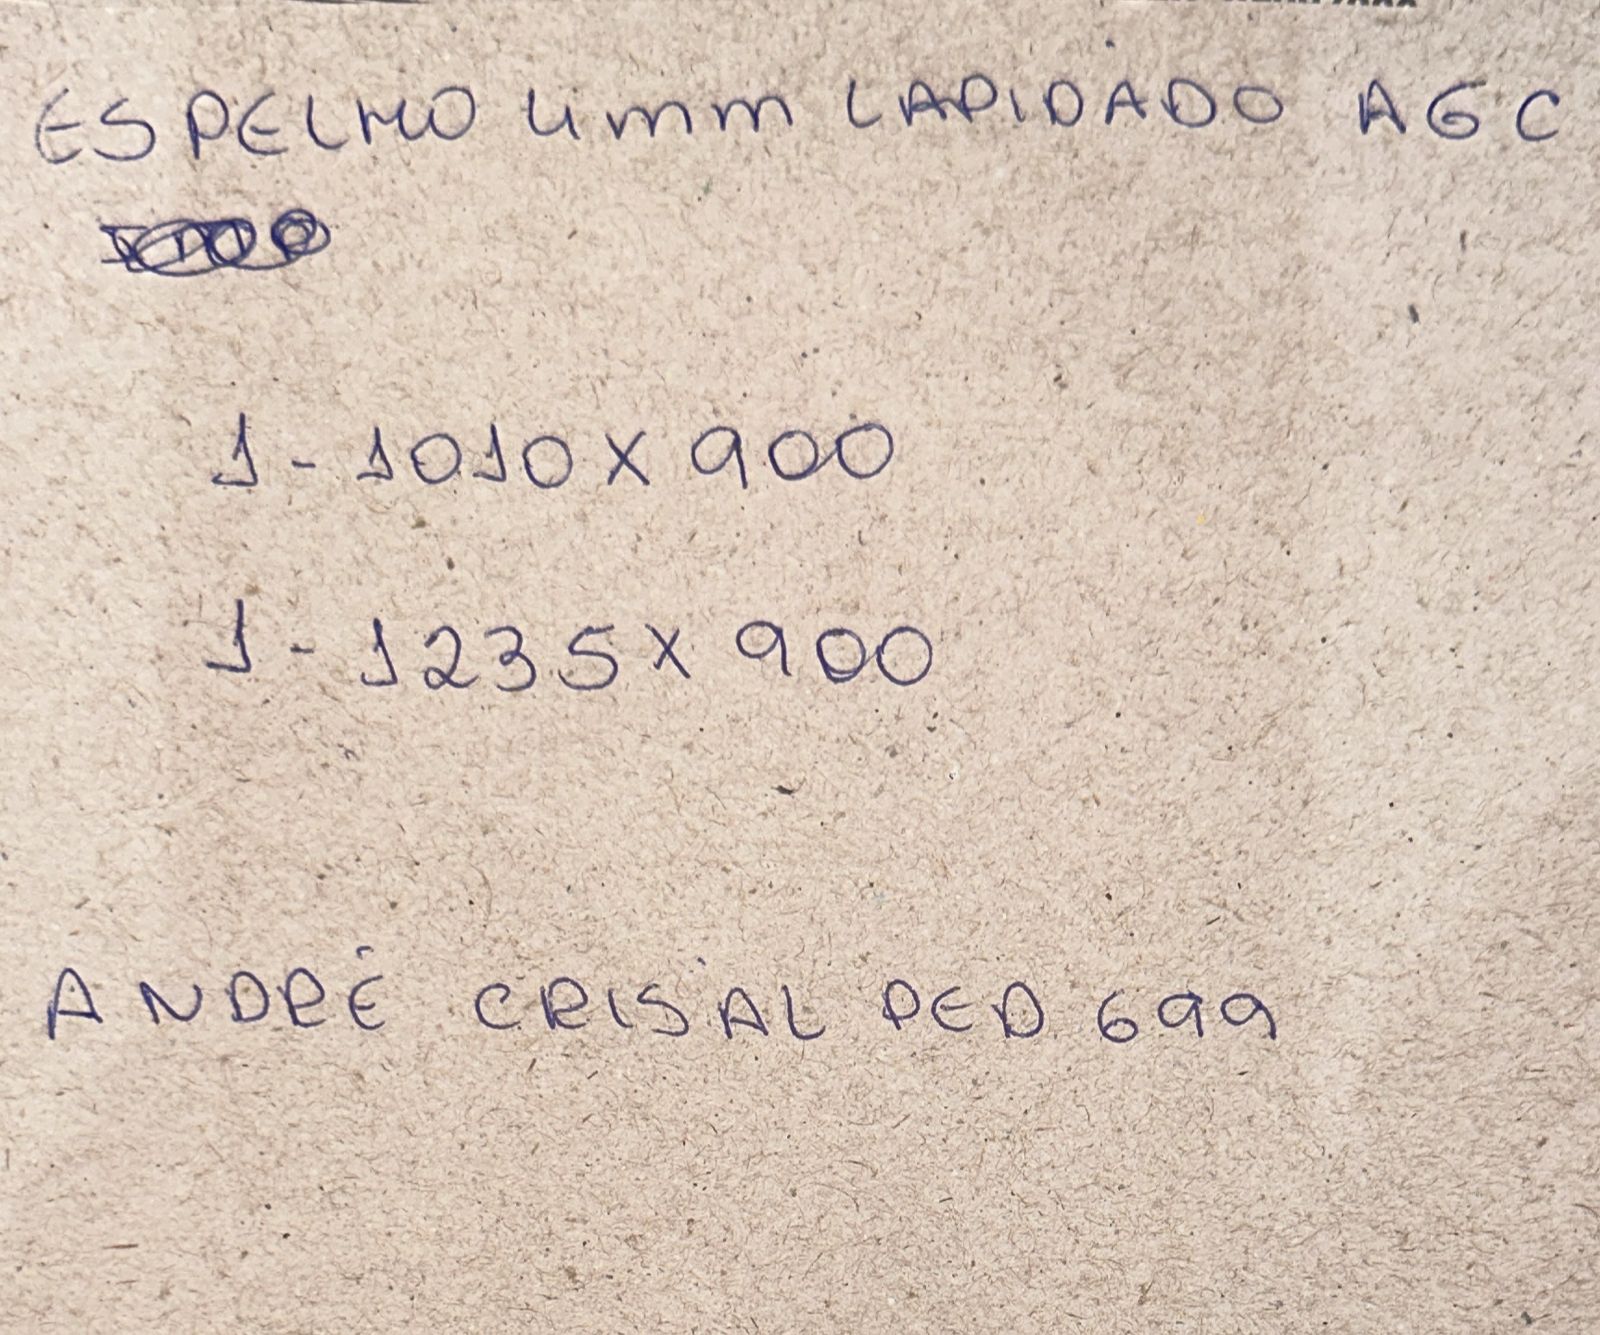 ESPELHO 4mm LAPIDADO AGC
1 - 1010 X 900
1 - 1235 X 900
ANDRÉ CRISAL PED 699